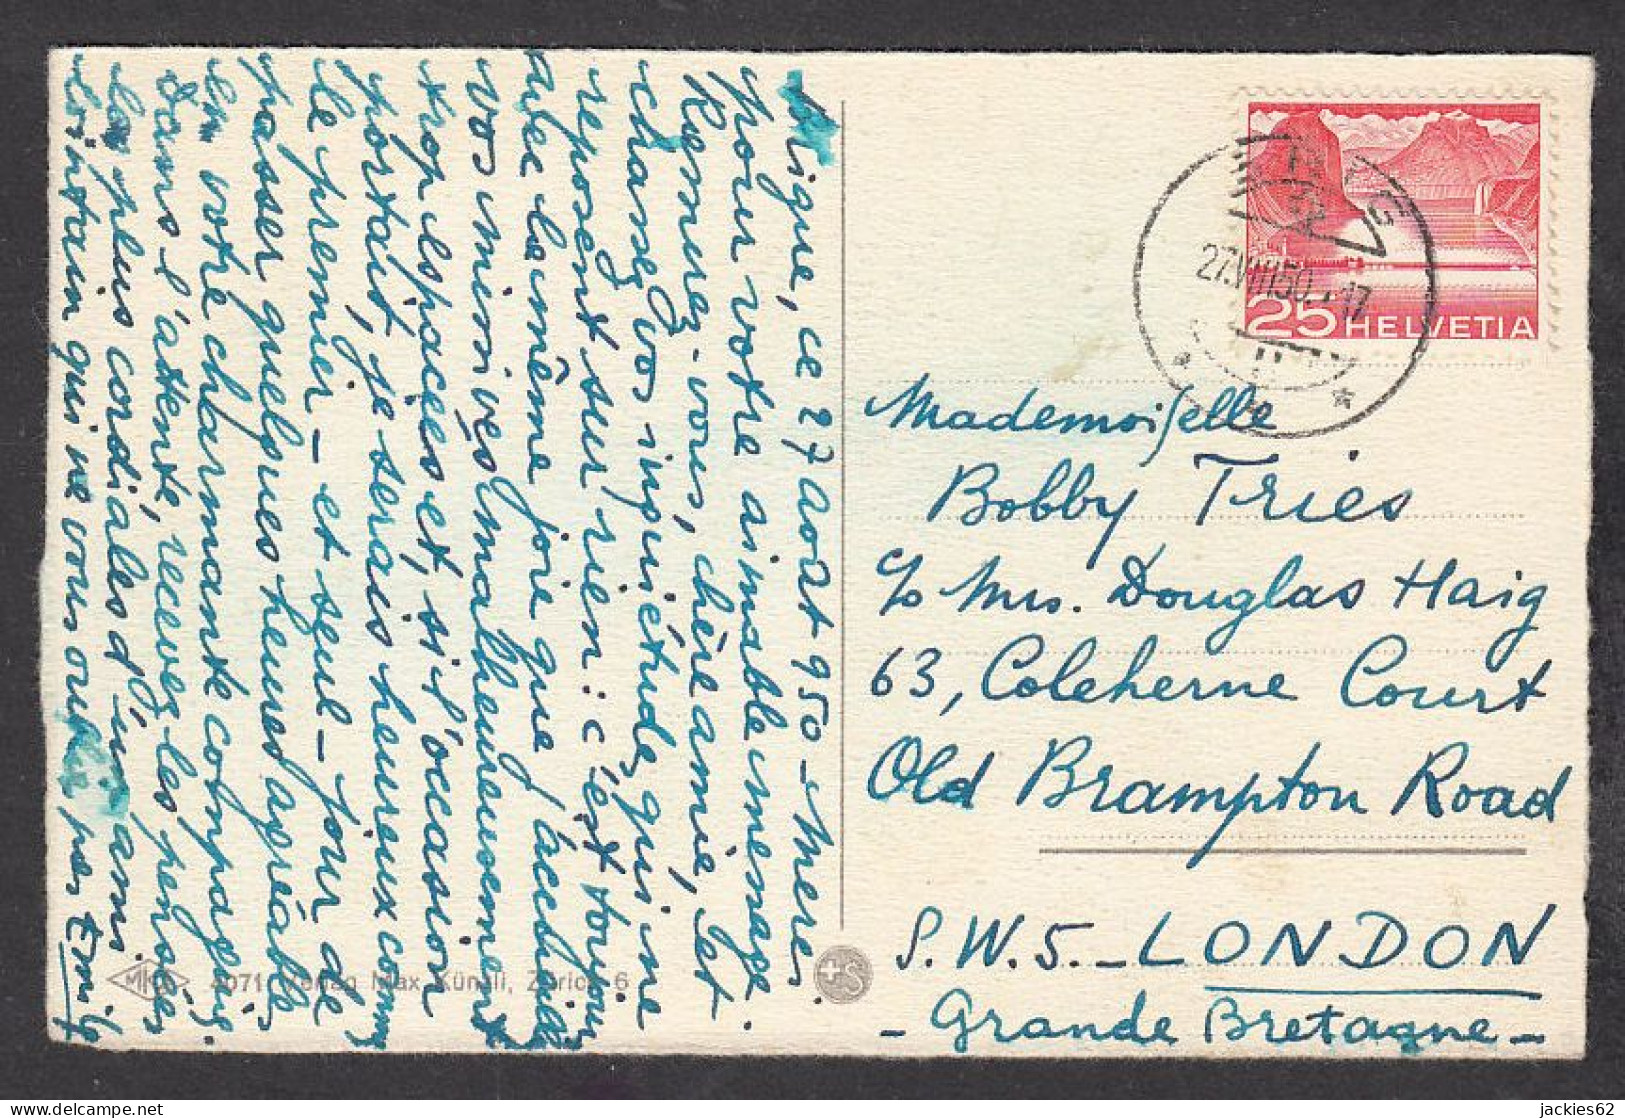 Migue, ce 27 août 950 - Merci
pour votre aimable message.
Remuez-vous, chère amie, et
chassez vos inquiétudes qui ne
reposent sur rien: c'est toujours
avec la même joie que j'accueille
vos missives malheureusement
trop espacées et, si l'occasion
portait, je serais heureux comme
le premier - et seul - jour de
passer quelques heures agréables
en votre charmante compagnie.
Dans l'attente, recevez les pensées
les plus cordiales d'un ami
lointain qui ne vous oublie pas Emily
HELVETIA
25
27.VIII.50.-17
Mademoiselle
Bobby Tries
c/o Mrs. Douglas Haig
63, Coleherne Court
Old Brampton Road
S.W.5. - LONDON
- Grande Bretagne -
MKZ 4071 Verlag Max Künzli, Zürich 6
+S
jackies62